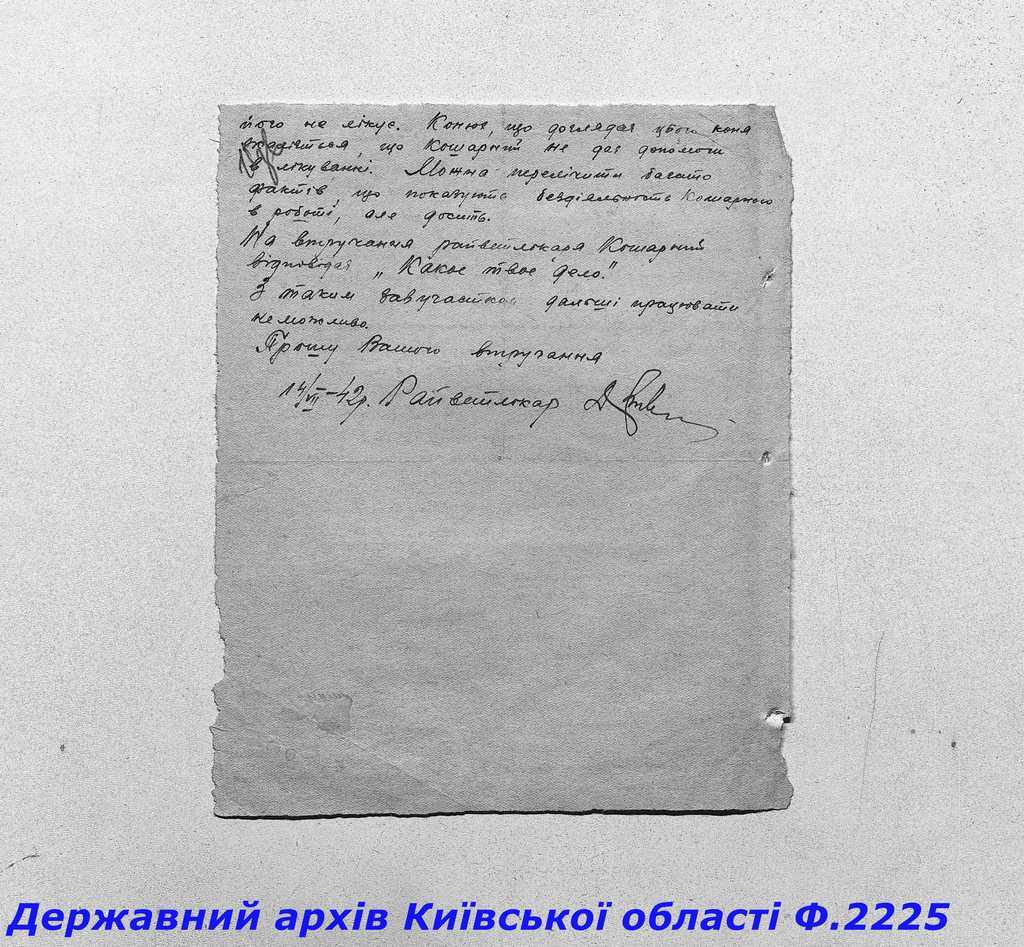 його не лікує. Конюх, що доглядає цього коня
що Кошарний не дає допомоги
в лікуванні. Можна перелічити багато
фактів, що показують бездіяльность Кошарного
в роботі, але досить.
На втручання райветлікаря Кошарний
відповідає „Какое твое дело."
З таким завучастком дальші працювати
неможливо.
Прошу Вашого втручання
14/VII-42р. Райветлікар
Державний архів Київської області Ф.2225